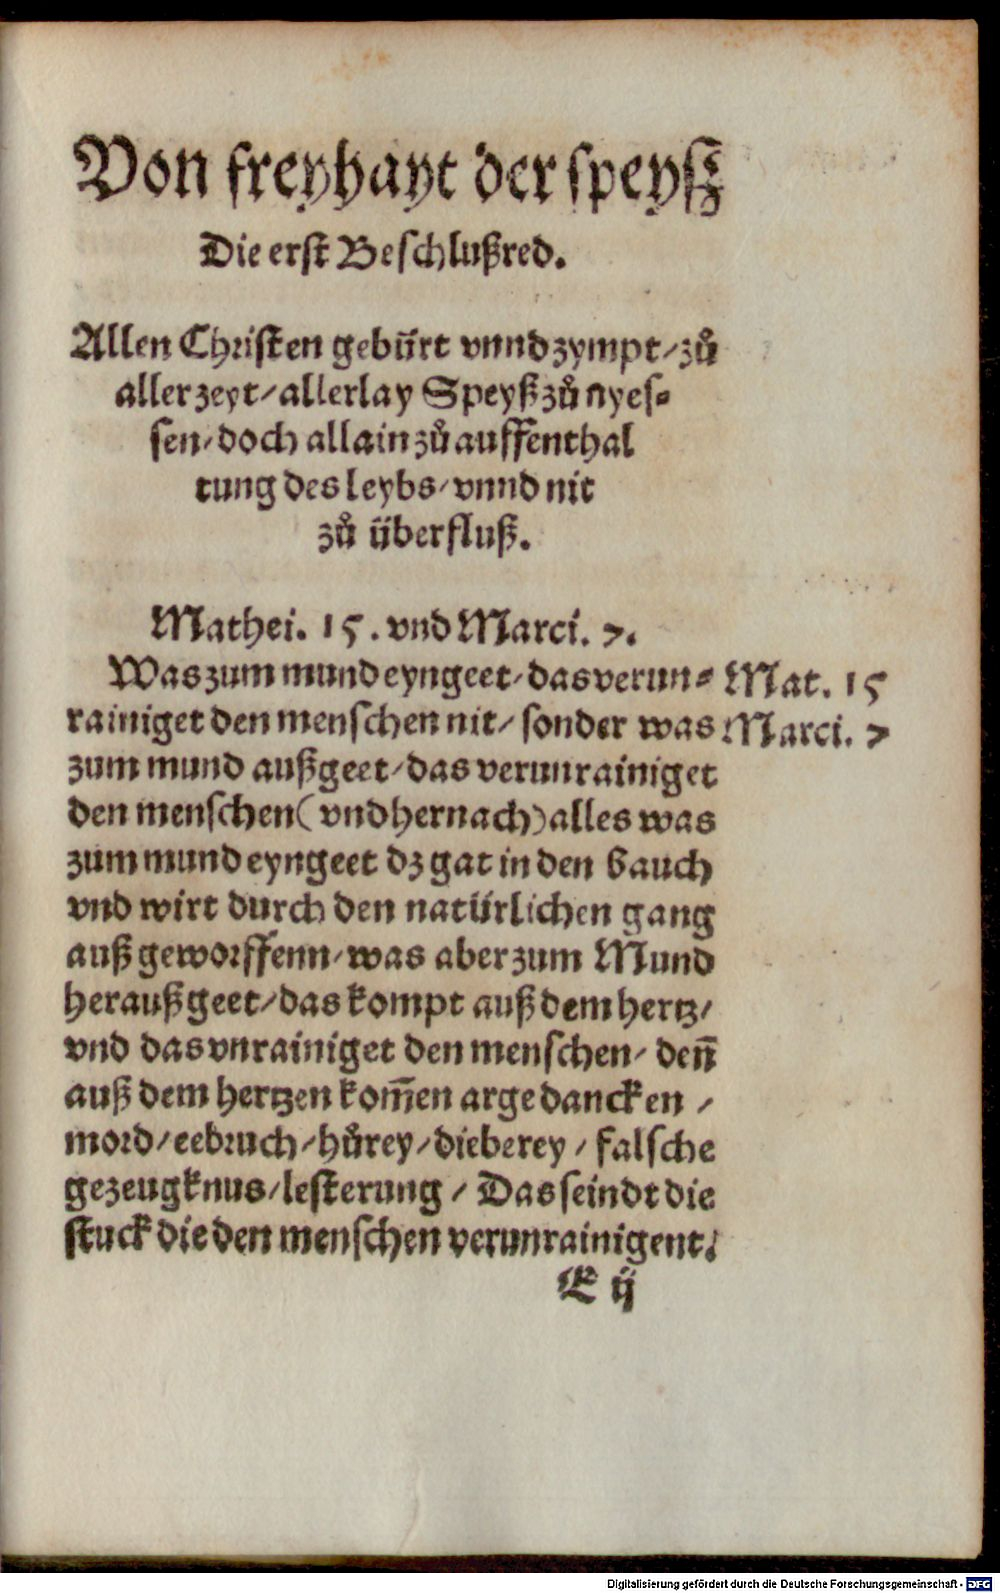 Von freyhayt der speyß
Die erst Beschlußred.
Allen Christen gebürt vnnd zympt/ zů
aller zeyt/ allerlay Speyß zů nyes⸗
sen/ doch allain zů auffenthal
tung des leybs/ vnnd nit
zů überfluß.
Mathei. 15. vnd Marci. 7.
Was zum mund eyngeet/ das verun⸗
rainiget den menschen nit/ sonder was
zum mund außgeet/ das verunrainiget
den menschen (vnd hernach) alles was
zum mund eyngeet dz gat in den bauch
vnd wirt durch den natürlichen gang
auß geworffenn/ was aber zum Mund
heraußgeet/ das kompt auß dem hertz/
vnd das vnrainiget den menschen/ deñ
auß dem hertzen kom̃en arge dancken /
mord/ eebruch/ hůrey/ dieberey / falsche
gezeugknus/ lesterung / Das seindt die
stuck die den menschen verunrainigent.
E ij
Mat. 15
Marci. 7
Digitalisierung gefördert durch die Deutsche Forschungsgemeinschaft - DFG